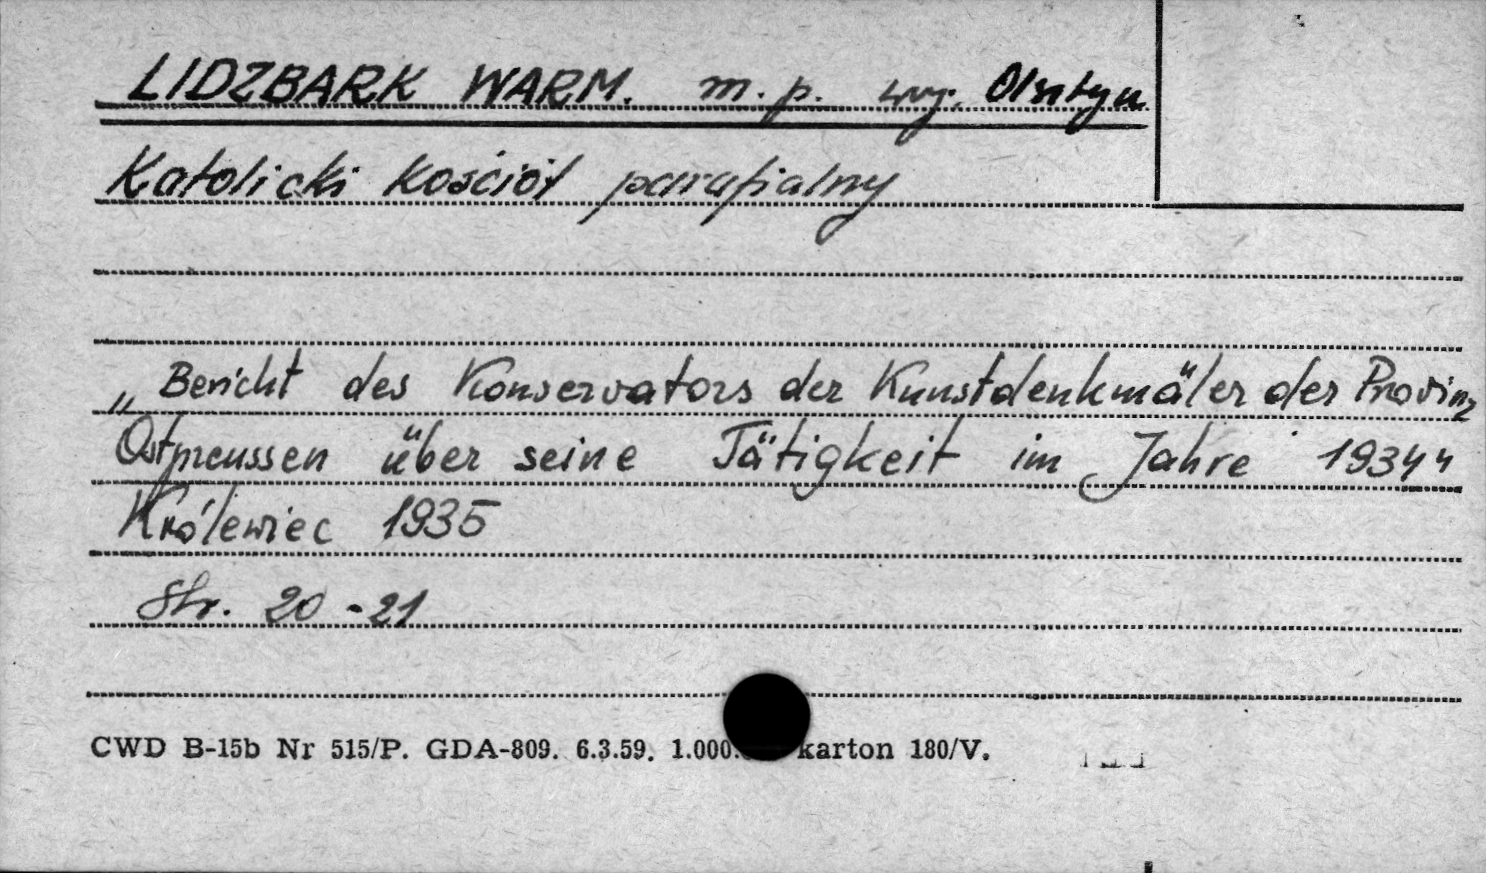 LIDZBARK WARM. m.p. woj. Olsztyn
Katolicki kościół parafialny
„Bericht des Konservators der Kunstdenkmäler der Provinz
Ostpreussen über seine Tätigkeit im Jahre 1934"
Królewiec 1935
Str. 20-21
CWD B-15b Nr 515/P. GDA-809. 6.3.59. 1.000. karton 180/V.